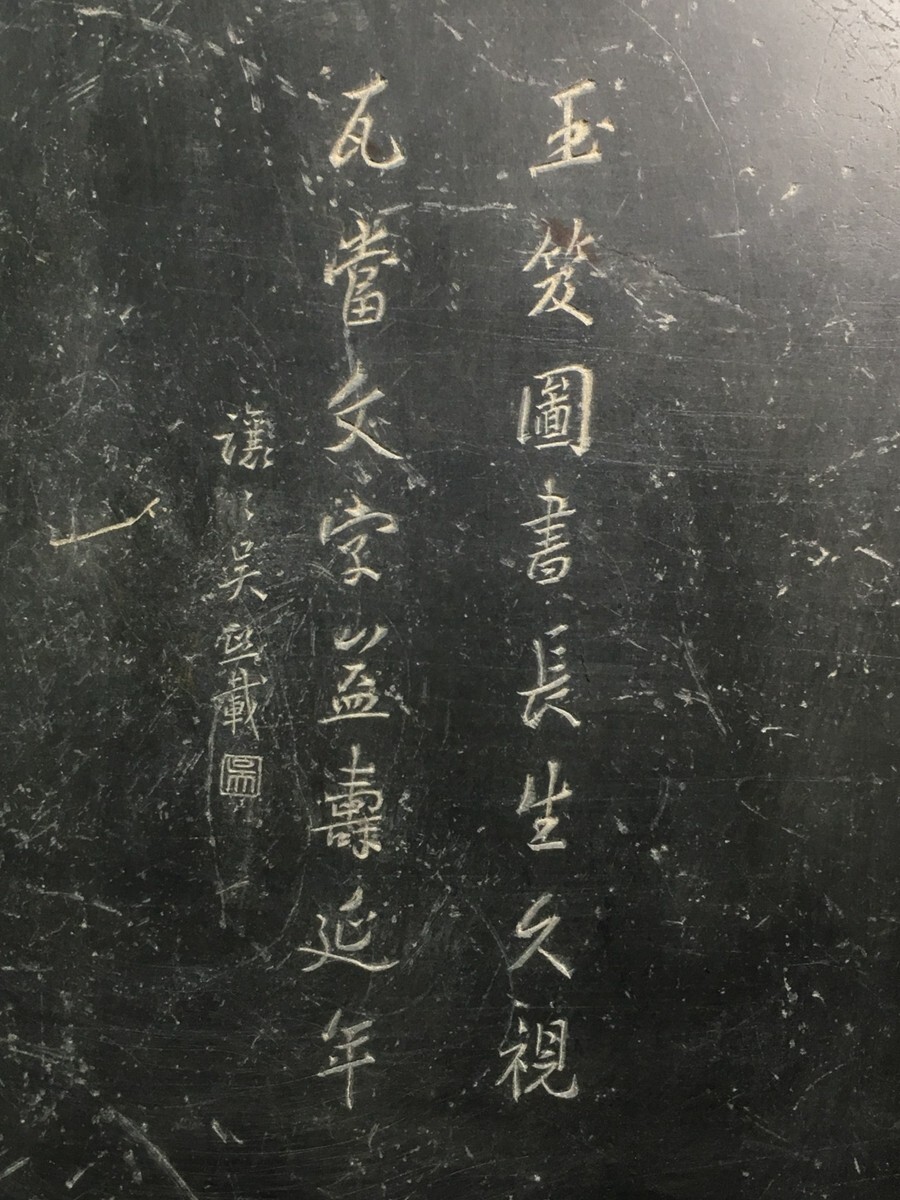 玉笈圖書長生久視
瓦當文字益壽延年
讓之吳熙載